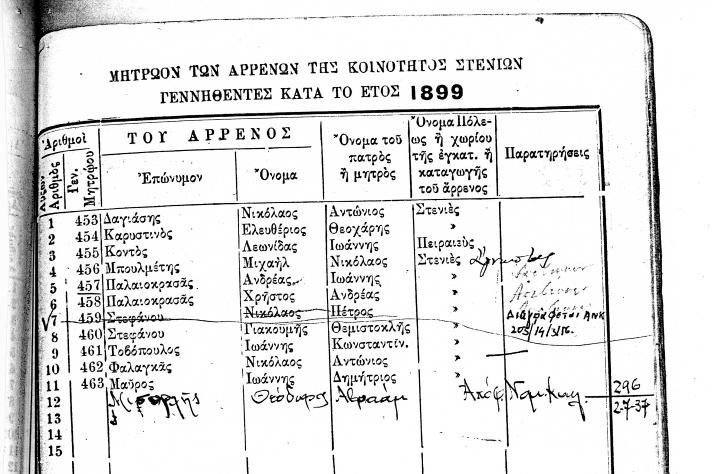 ΜΗΤΡΩΟΝ ΤΩΝ ΑΡΡΕΝΩΝ ΤΗΣ ΚΟΙΝΟΤΗΤΟΣ ΣΤΕΝΙΩΝ
ΓΕΝΝΗΘΕΝΤΕΣ ΚΑΤΑ ΤΟ ΕΤΟΣ 1899
Ἀριθμοὶ ΤΟΥ ΑΡΡΕΝΟΣ Ὄνομα τοῦ πατρὸς ἢ μητρὸς Ὄνομα Πόλεως ἢ χωρίου τῆς ἐγκατ. ἢ καταγωγῆς τοῦ ἄρρενος Παρατηρήσεις
Αὔξων Ἀριθμὸς Γεν. Μητρῴου Ἐπώνυμον Ὄνομα
1 453 Δαγιάσης Νικόλαος Ἀντώνιος Στενιὲς
2 454 Καρυστινὸς Ἐλευθέριος Θεοχάρης "
3 455 Κοντὸς Λεωνίδας Ἰωάννης Πειραιεὺς
4 456 Μπουλμέτης Μιχαὴλ Νικόλαος Στενιὲς
5 457 Παλαιοκρασᾶς Ἀνδρέας Ἰωάννης "
6 458 Παλαιοκρασᾶς Χρῆστος Ἀνδρέα "
7 459 Στεφάνου Νικόλαος Πέτρος " 203/14/3/16.
8 460 Στεφάνου Γιακουμῆς Θεμιστοκλῆς "
9 461 Τοθόπουλος Ἰωάννης Κωνσταντῖν. "
10 462 Φαλαγκᾶς Νικόλαος Ἀντώνιος "
11 463 Μαῦρος Ἰωάννης Δημήτριος "
12 Ἀβραὰμ 296
13 2-7-37
14
15